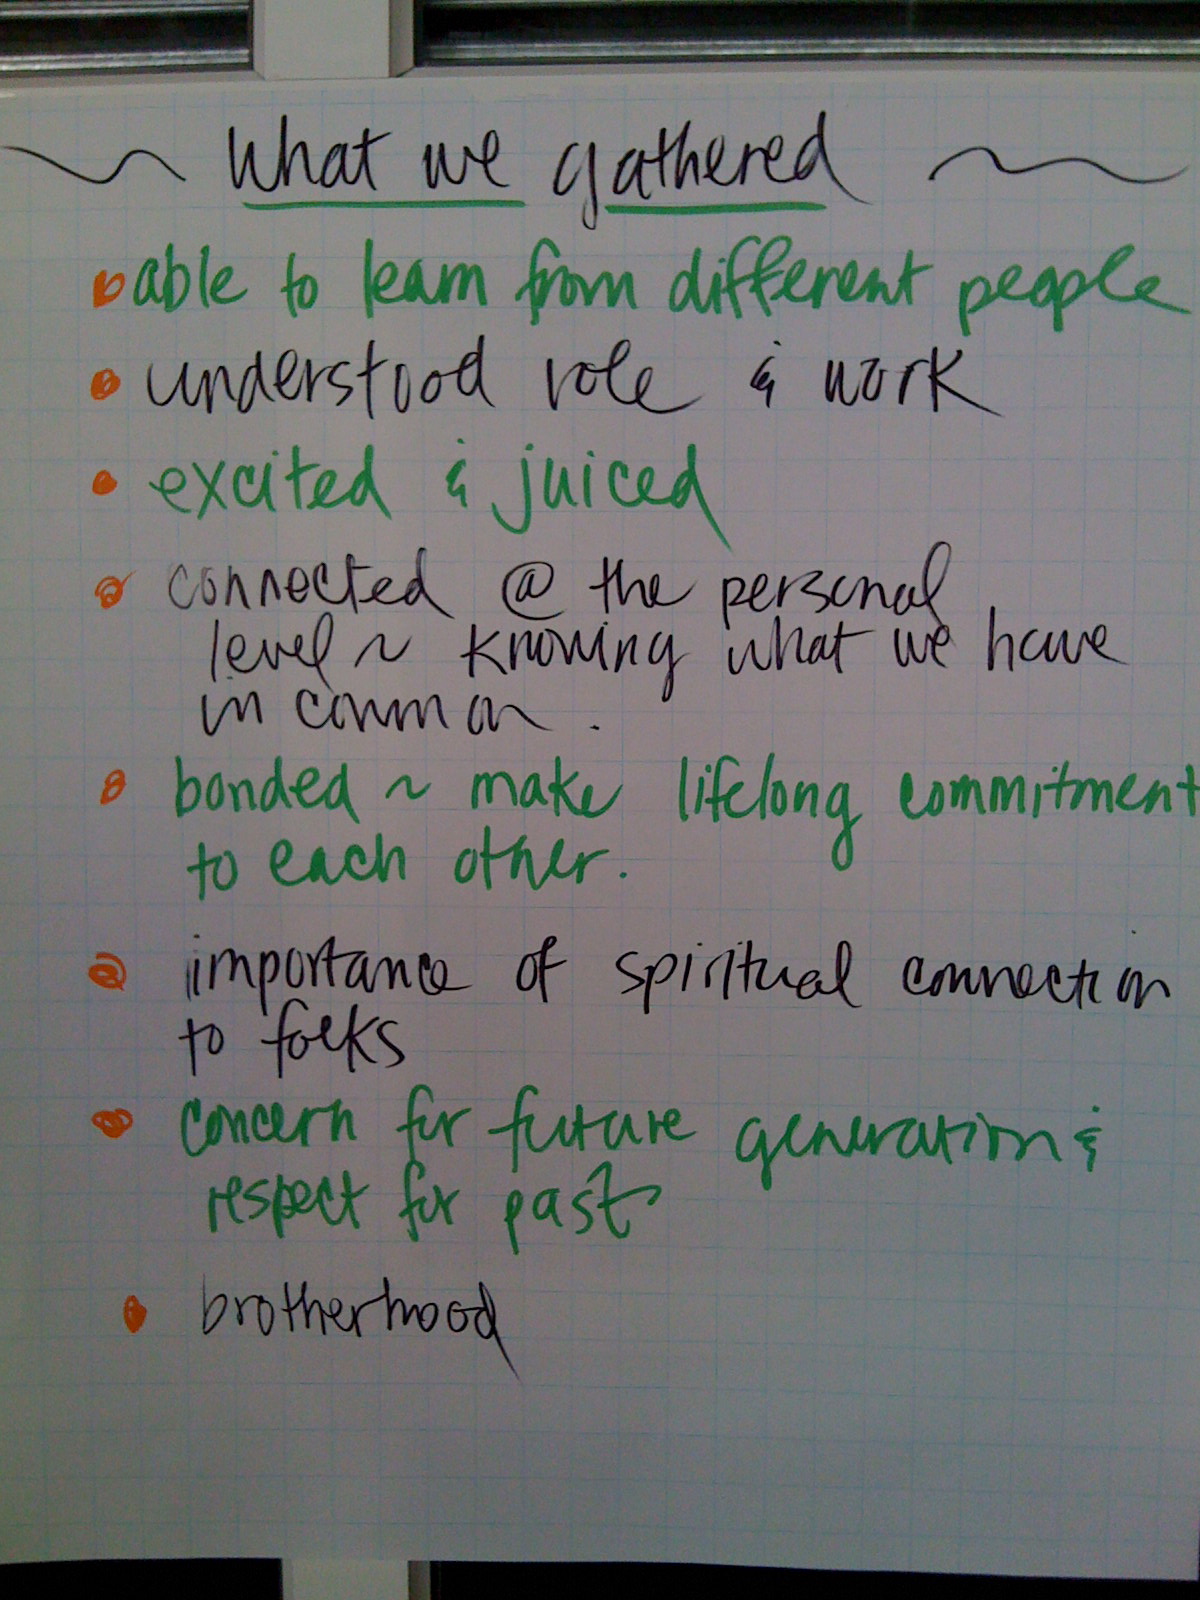 ~ What we gathered ~
• able to learn from different people
• understood role & work
• excited & juiced
• connected @ the personal
level ~ knowing what we have
in common.
• bonded ~ make lifelong commitment
to each other.
• importance of spiritual connection
to folks
• concern for future generation &
respect for past
• brotherhood